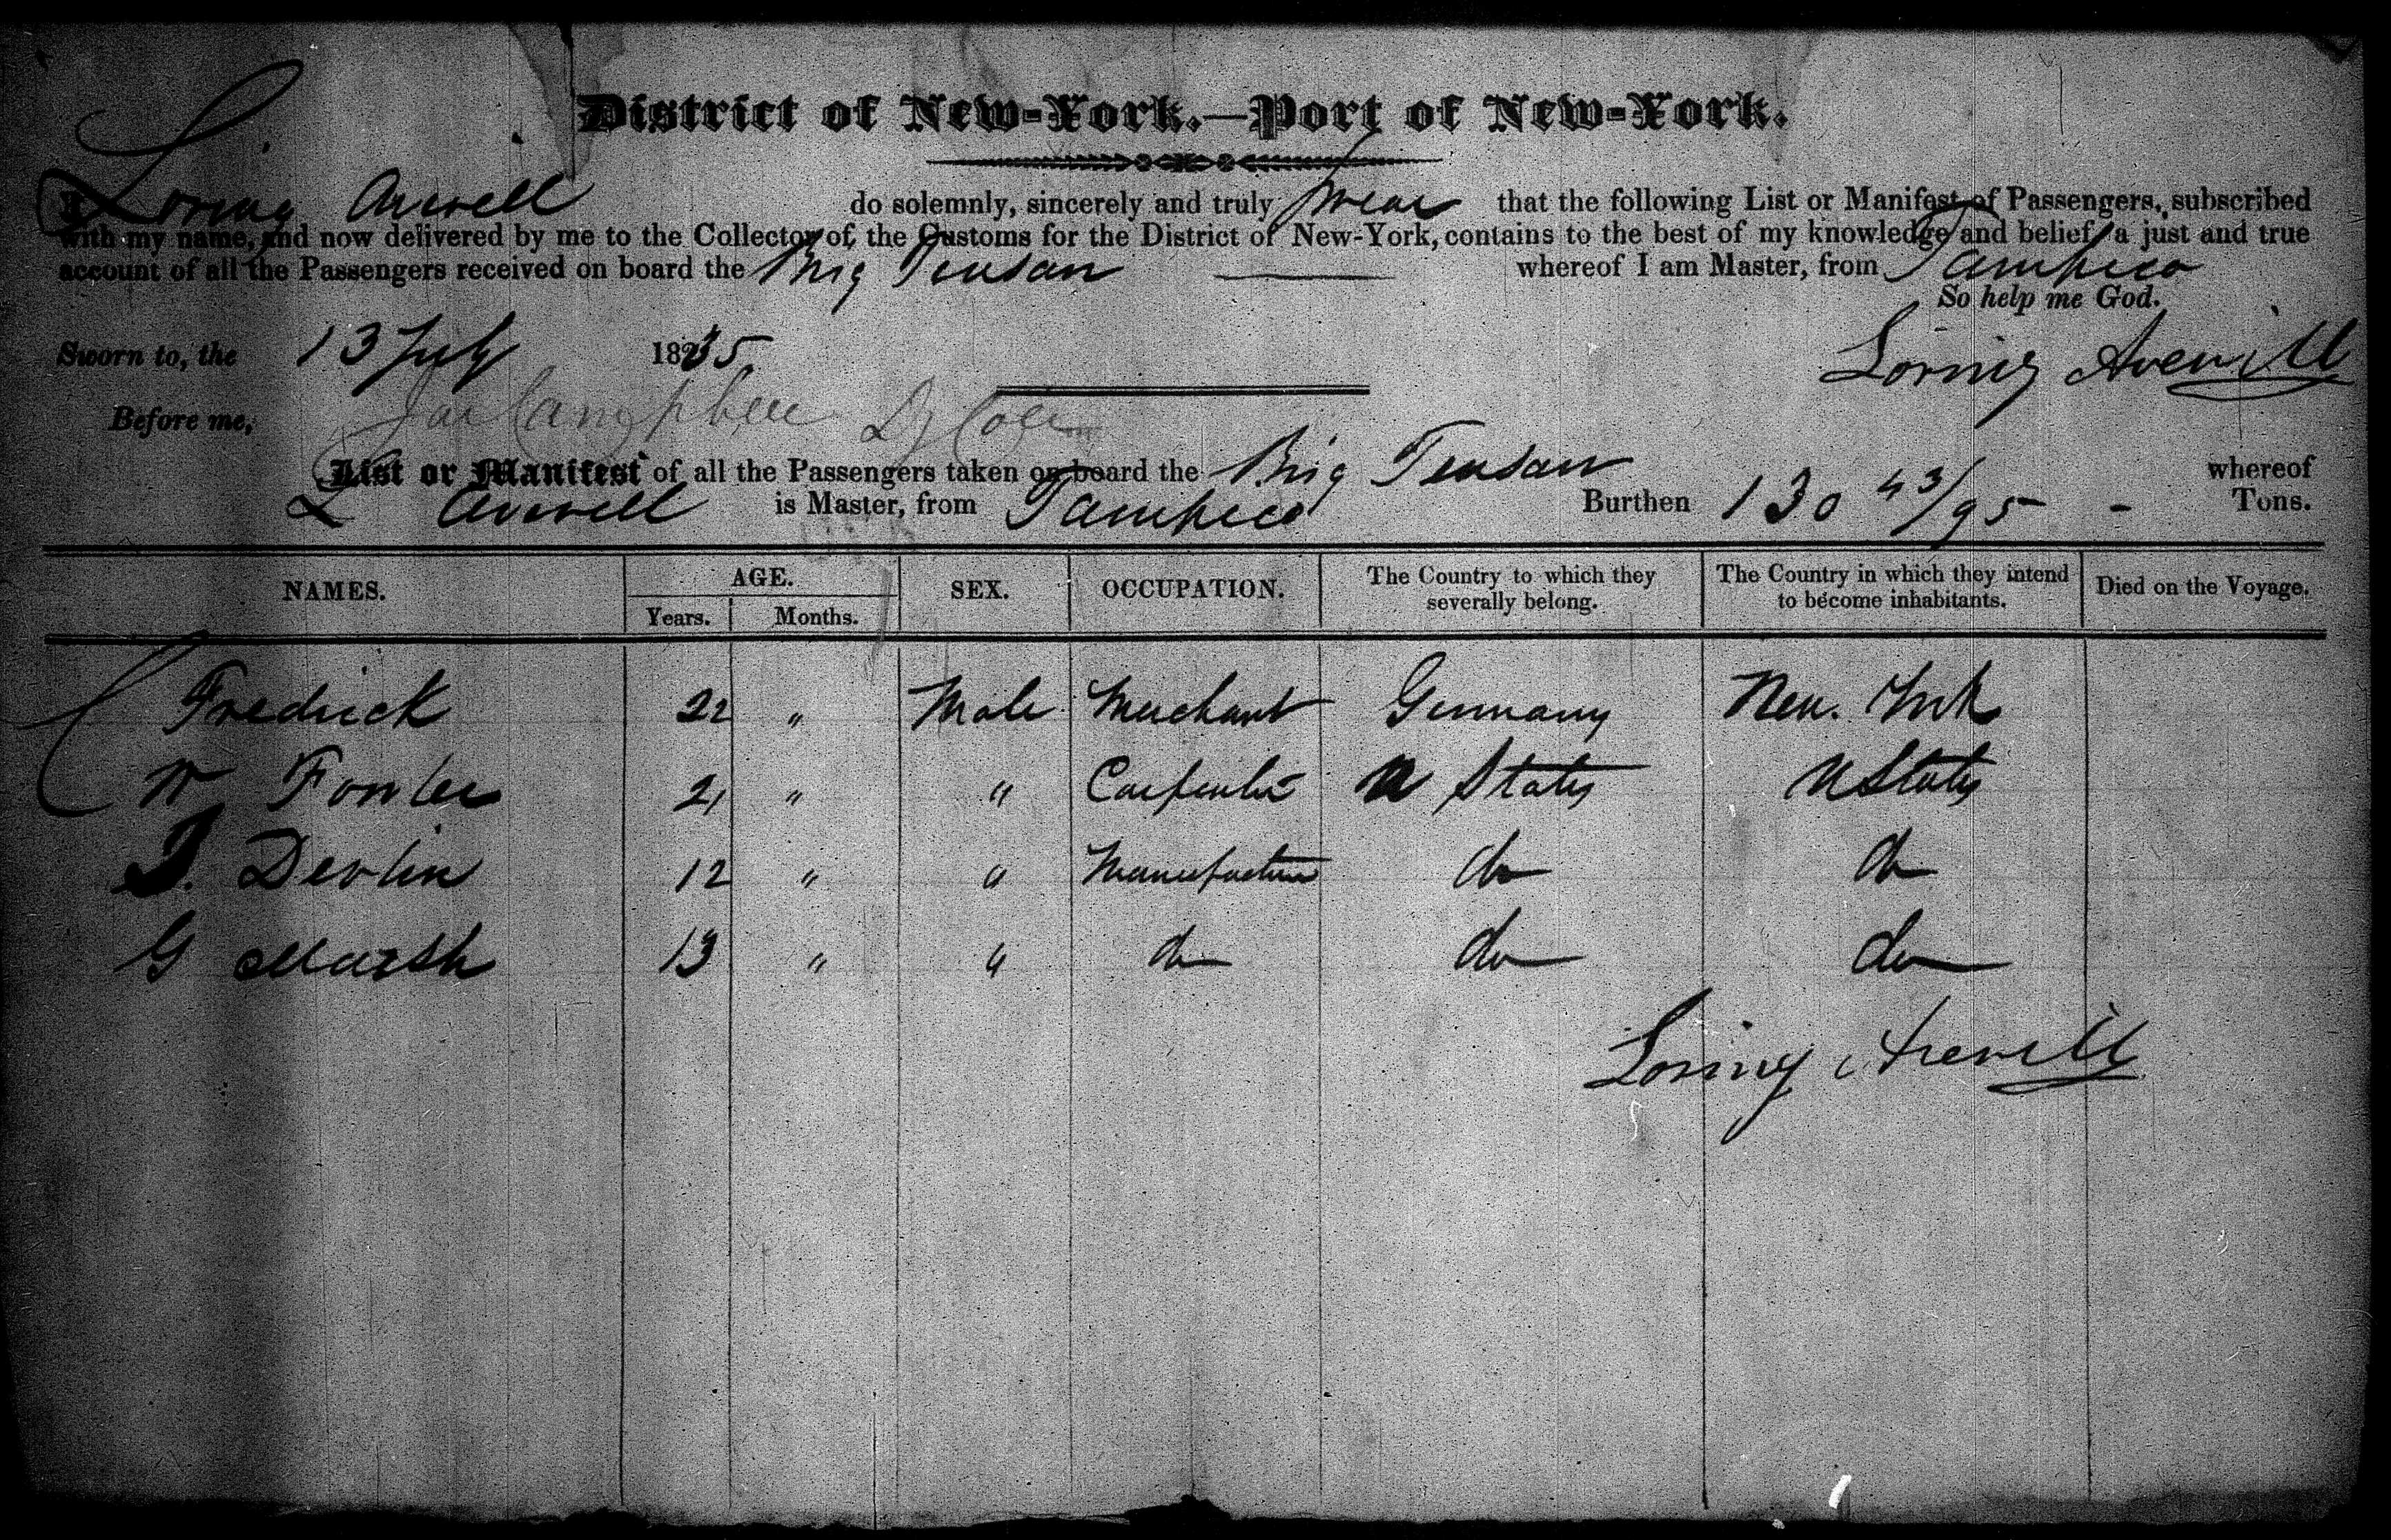 District of New-York.—Port of New-York.
I Loring Averell do solemnly, sincerely and truly swear that the following List or Manifest of Passengers, subscribed
with my name, and now delivered by me to the Collector of the Customs for the District of New-York, contains to the best of my knowledge and belief, a just and true
account of all the Passengers received on board the Brig Tensaw whereof I am Master, from Tampico
So help me God.
Sworn to, the 13 July 1835. Loring Averill
Before me, Campbell
List or Manifest of all the Passengers taken on board the Brig Tensaw whereof
L Averell is Master, from Tampico Burthen 130 43/95 - Tons.
NAMES. AGE. SEX. OCCUPATION. The Country to which they severally belong. The Country in which they intend to become inhabitants. Died on the Voyage.
Years. Months.
Fredrick 22 " Male Merchant Germany New. York
W Fowler 21 " " Carpenter U States U States
Devlin 12 " " Manufacturer do do
G Marsh 13 " " do do do
Loring Averill